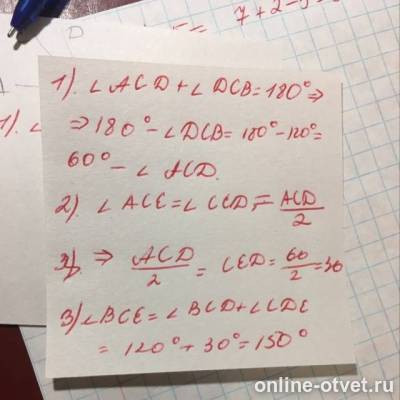 7+2-
1). ∠
1). ∠ACD + ∠DCB = 180° ⇒
⇒ 180° - ∠DCB = 180° - 120° =
60° - ∠ ACD.
2) ∠ACE = ∠CED, = ACD/2
⇒ ACD/2 = CED = 60/2 = 30
3) ∠BCE = ∠BCD + ∠CDE
= 120° + 30° = 150°
online-otvet.ru